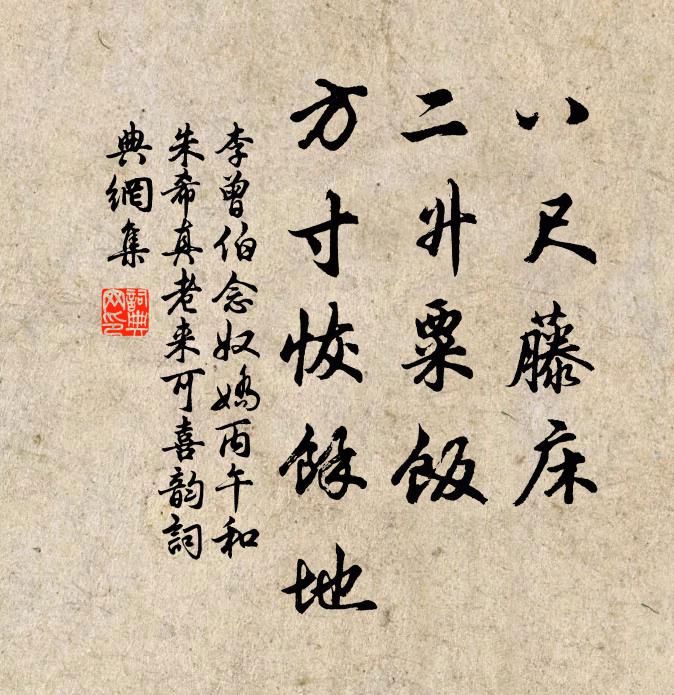 八尺藤床
二升粟飯
方寸恢餘地
李曾伯念奴嬌丙午和
朱希真老来可喜韵詞
典網集
詞典网印